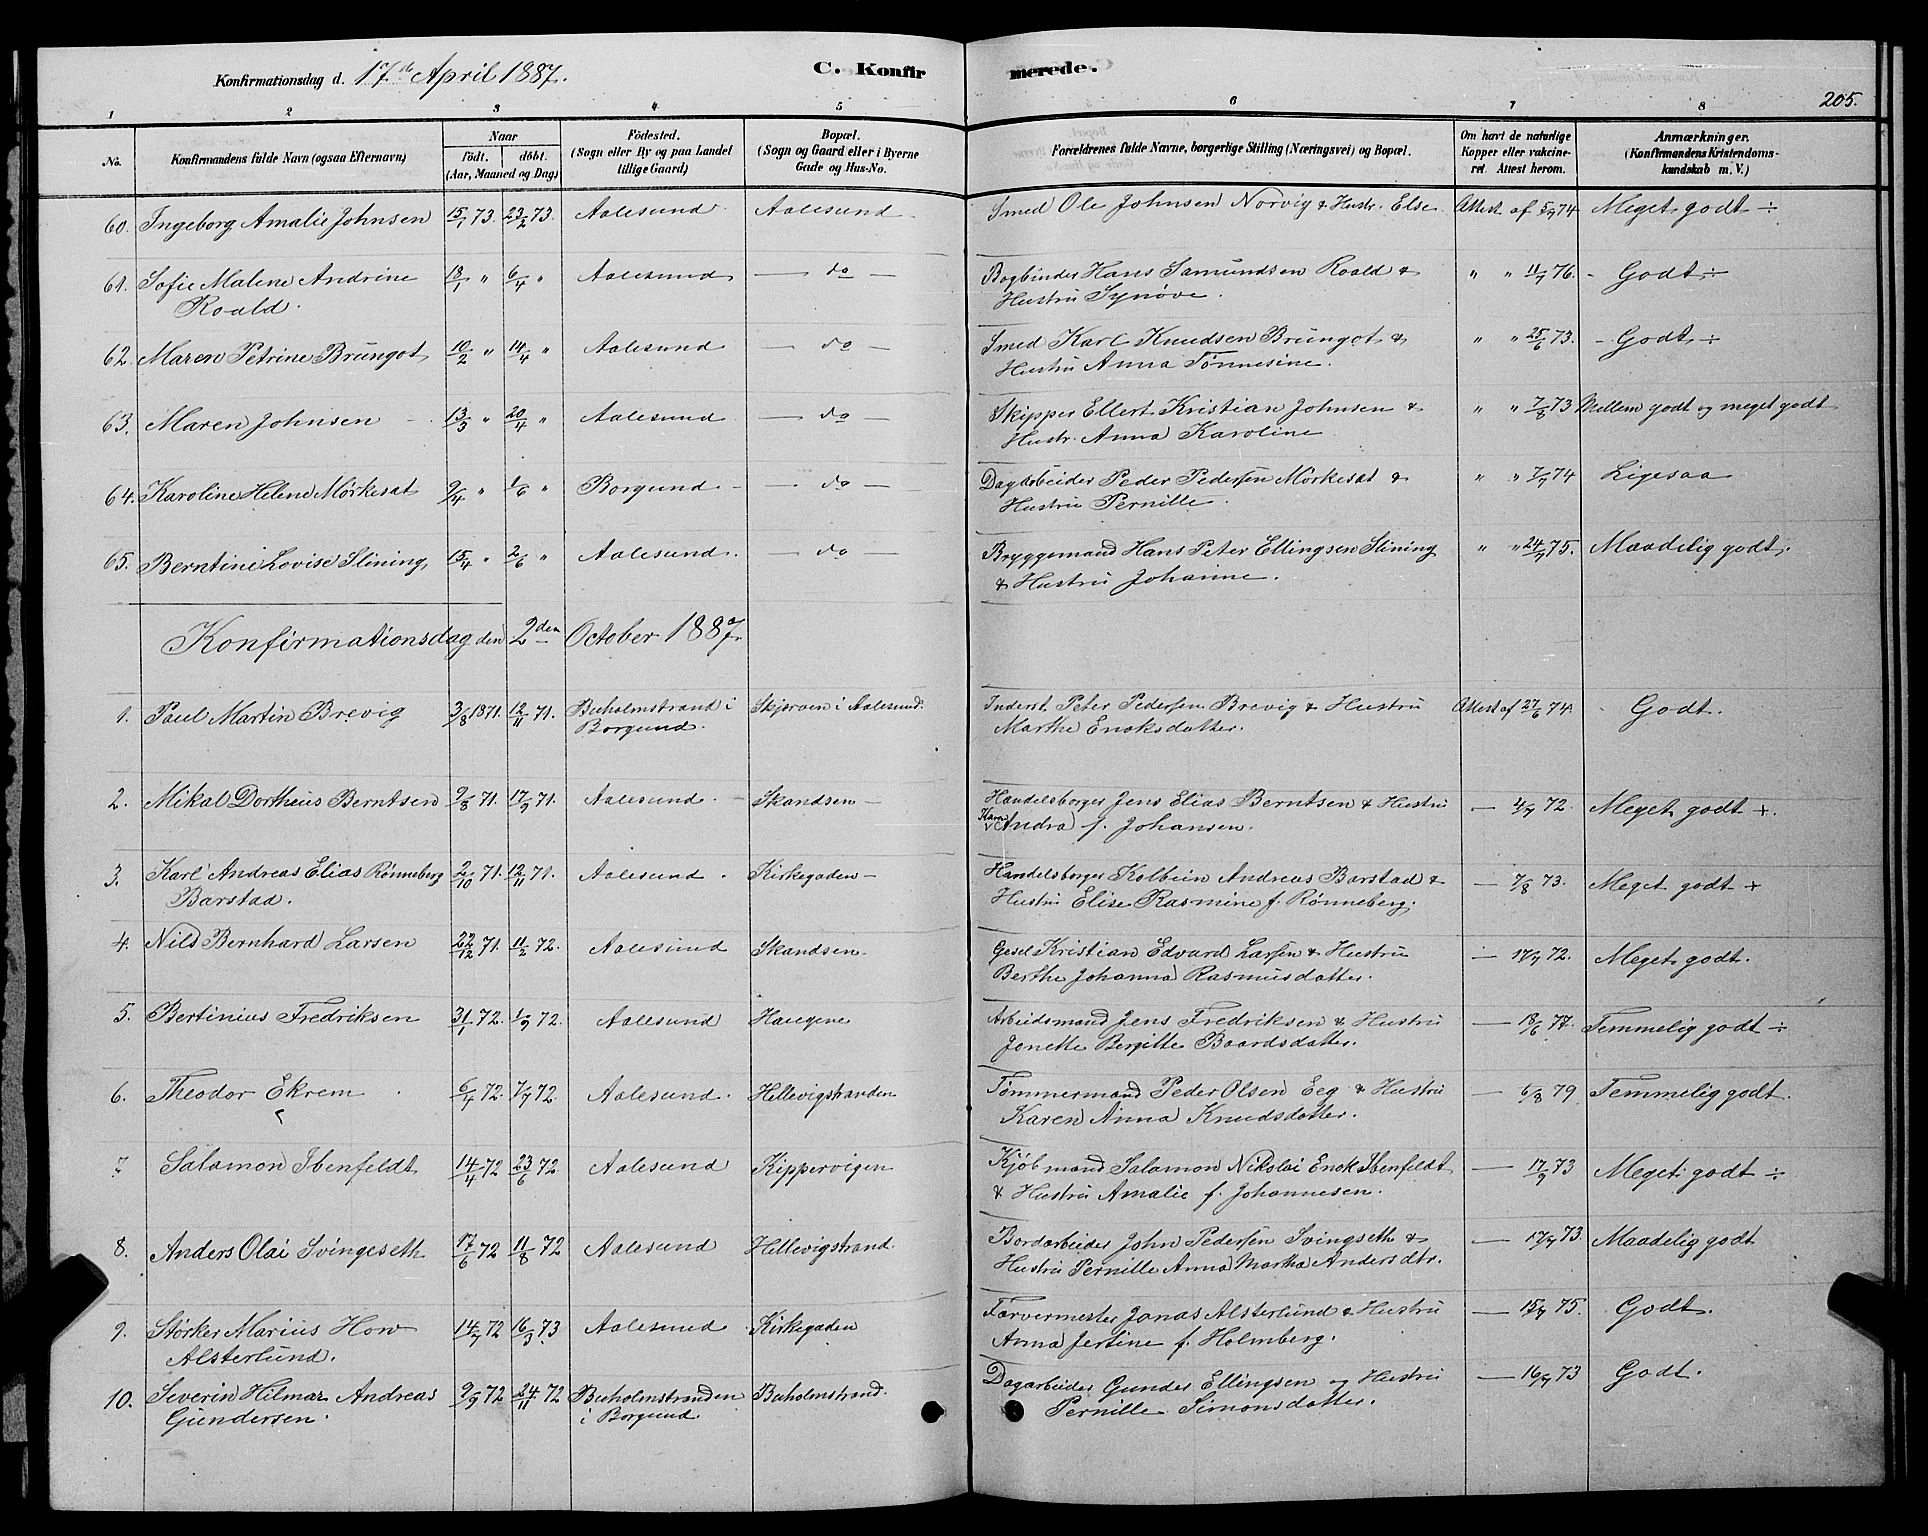 Konfirmationsdag d. 17de April 1887.
C. Konfirmerede.
205.
1 2 3 4 5 6 7 8
No.
Konfirmandens fulde Navn (ogsaa Efternavn)
Naar
födt. döbt.
(Aar, Maaned og Dag)
Födested.
(Sogn eller By og paa Landet
tillige Gaard)
Bopæl.
(Sogn og Gaard eller i Byerne
Gade og Hus-No.
Forældrenes fulde Navne, borgerlige Stilling (Næringsvei) og Bopæl.
Om havt de naturlige
Kopper eller vakcine-
ret. Attest herom.
Anmærkninger.
(Konfirmandens Kristendoms-
kundskab m. V.)
60. Ingeborg Amalie Johnsen 15/1 73. 23/2 73. Aalesund Aalesund Smed Ole Johnsen Norvig & Hustr. Else Attest af 5/7 74 Meget godt ÷
61. Sofie Malene Andrine 18/1 " 6/4 " Aalesund — do — Bogbinder Hans Samundsen Roald & " " 11/7 76. - Godt ÷
Roald. Hustru Synöve.
62. Maren Petrine Brungot 10/2 " 14/4 " Aalesund — do — Smed Karl Knudsen Brungot & " " 25/6 73. - Godt ÷
Hustru Anna Tönnesine.
63. Maren Johnsen 13/3 " 20/4 " Aalesund — do — Skipper Ellert Kristian Johnsen & " " 7/8 73 Mellem godt og meget godt
Hustr. Anna Karoline
64. Karoline Helene Mörkesat 9/4 " 1/6 " Borgund — do — Dagarbeider Peder Pedersen Mörkesat & " " 7/7 74 Ligesaa
Hustru Pernille.
65. Berntine Lovise Slining, 15/4 " 2/6 " Aalesund. — do — Bryggemand Hans Peter Ellingsen Slining " " 24/7 75. Maadelig godt.
& Hustru Johanne.
Konfirmationsdag den 2den October 1887.
1. Paul Martin Brevig 3/8 1871. 12/11 71. Buholmstrand i Skjærven i Aalesund. Inderst. Peter Pedersen Brevig & Hustru Attest af 27/6 74. Godt.
Borgund. Marthe Enoksdatter.
2. Mikal Dortheus Berntsen 9/8 71. 17/9 71. Aalesund. Skandsen — Handelsborger Jens Elias Berntsen & Hustru — 4/7 72. Meget godt +.
Andra f. Johansen.
3. Karl Andreas Elias Rönneberg 2/10 71. 12/11 71. Aalesund Kirkegaden — Handelsborger Kolbein Andreas Barstad & — 7/8 73. Meget godt +
Barstad. Hustru Elise Rasmine f. Rönneberg.
4. Nils Bernhard Larsen 22/12 71. 11/2 72. Aalesund Skandsen. Gesel Kristian Edvard Larsen & Hustru — 17/7 72. Meget godt.
Berthe Johanna Rasmusdatter.
5. Bertinius Fredriksen 31/1 72. 1/9 72. Aalesund Haugene Arbeidsmand Jens Fredriksen & Hustru — 18/6 77. Temmelig godt ÷
Jonette Bergitte Baardsdatter.
6. Theodor Ekrem 6/4 72. 7/7 72. Aalesund. Hellevigstranden Tömmermand Peder Olsen Eeg & Hustru — 6/8 79 Temmelig godt.
Karen Anna Knudsdatter.
7. Salamon Ibenfeldt 14/4 72 23/6 72 Aalesund Kippervigen Kjöbmand Salamon Nikolai Enok Ibenfeldt — 17/9 73 Meget godt ÷
& Hustru Amalie f. Johannesen.
8. Anders Olai Svingeseth 17/6 72 11/8 72 Aalesund Hellevigstrand Bordarbeider John Pedersen Svingseth & — 17/7 73. Maadelig godt
Hustru Pernille Anna Martha Andersdtr.
9. Störker Marius How 14/7 72 16/3 73 Aalesund Kirkegaden Farvermester Jonas Alsterlund & Hustru — 15/7 75. Godt.
Alsterlund. Anna Jertine f. Holmberg.
10. Severin Hilmar Andreas 9/9 72 24/11 72 Buholmstranden Buholmstrand. Dagarbeider Gunder Ellingsen og Hustru — 16/7 73 Godt.
Gundersen. i Borgund. Pernille Simonsdatter.